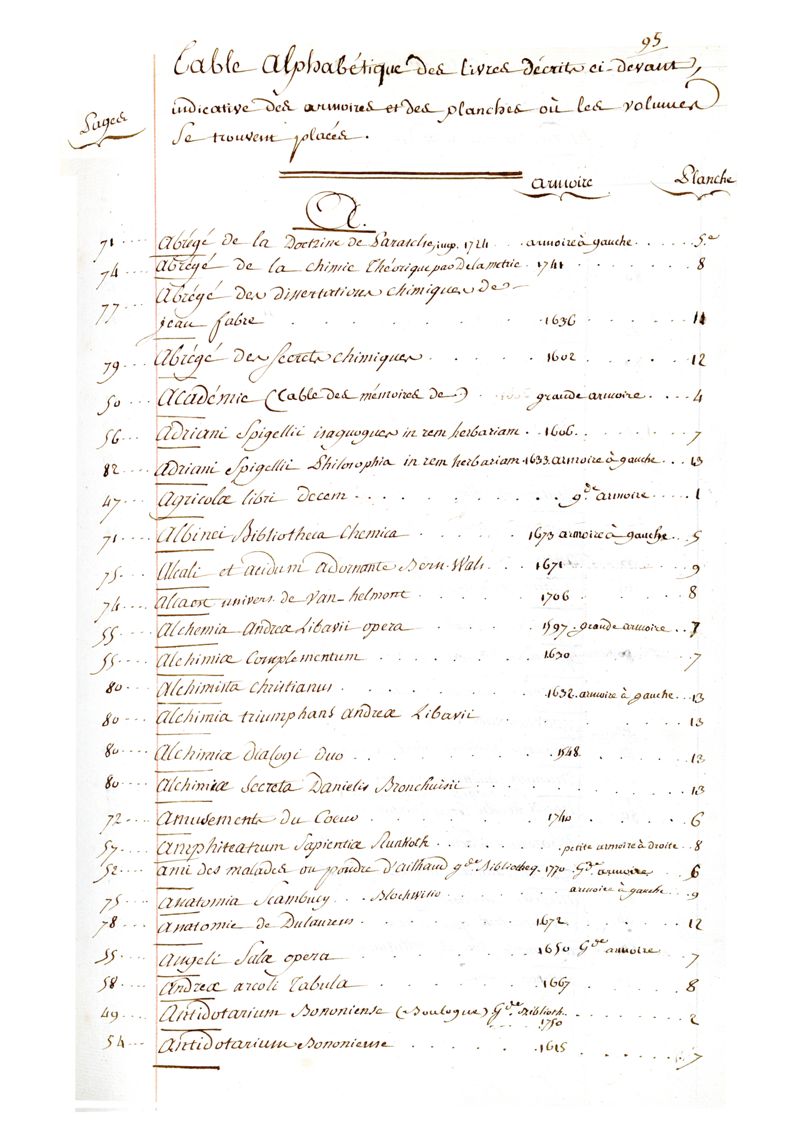 95
Table Alphabétique des livres décrits ci-devant,
indicative des armoires et des planches où les volumes
Se trouvent placés.
Pages
armoire Planche
A.
71 Abrégé de la Doctrine de Paracelse, imp. 1724 .. armoire à gauche .... 5.e
74 .... abrégé de la chimie Théorique par Delametrie 1741 ...... 8
77 .... Abrégé des dissertations chimiques de
jean fabre ...... 1636 ...... 11
79 ... Abrégé des secrets chimiques .... 1602 ...... 12
50 ... Académie (table des mémoires de..) grande armoire ... 4
56 .... Adriani Spigellii isagoques in rem herbariam . 1606 ...... 7
82 ... Adriani Spigellii Philosophia in rem herbariam . 1633 armoire à gauche ... 13
47 .... Agricolæ libri decem ........ g.de armoire .... 1
71 .... Albinei Bibliotheca Chemica ...... 1673 armoire à gauche ... 5
75 .... Alcali et acidum adornante Bern. Wals. .. 1671 ...... 9
74 .... alcaest univers. de Van-helmont .... 1706 ...... 8
55 .... Alchemia Andreæ Libavii opera ..... 1597 . grande armoire .. 7
55 .... Alchimiæ Complementum ...... 1630 ...... 7
80 .... Alchimista Christianus ...... 1632. armoire à gauche ... 13
80 .... Alchimia triumphans andreæ Libavii ...... 13
80 .... Alchimiæ dialogi duo ...... 1548 ...... 13
80 .... Alchimiæ Secreta Danielis Bronchuisii ........ 13
72 .... Amusements du Coeur ...... 1740 ...... 6
57 ... Amphiteatrum Sapientiæ Kunkolk ...... petite armoire à droite .. 8
52 ... ami des malades ou poudre d'ailhaud g.de Bibliotheq. 1770 G.de armoire 6
75 .... Anatomia Scambucy ... Blochwitio ...... armoire à gauche ... 9
78 .... anatomie de Dulaurens ...... 1672 ...... 12
55 .... Angeli Salæ opera ...... 1650 G.de armoire ... 7
58 .... Andreæ arcoli Tabula ...... 1667 ...... 8
49 .... Antidotarium Bononiense (Boulogne) G.de Biblioth. ..... 2
1750
54 ... Antidotarium Bononiense ...... 1615 ...... 7